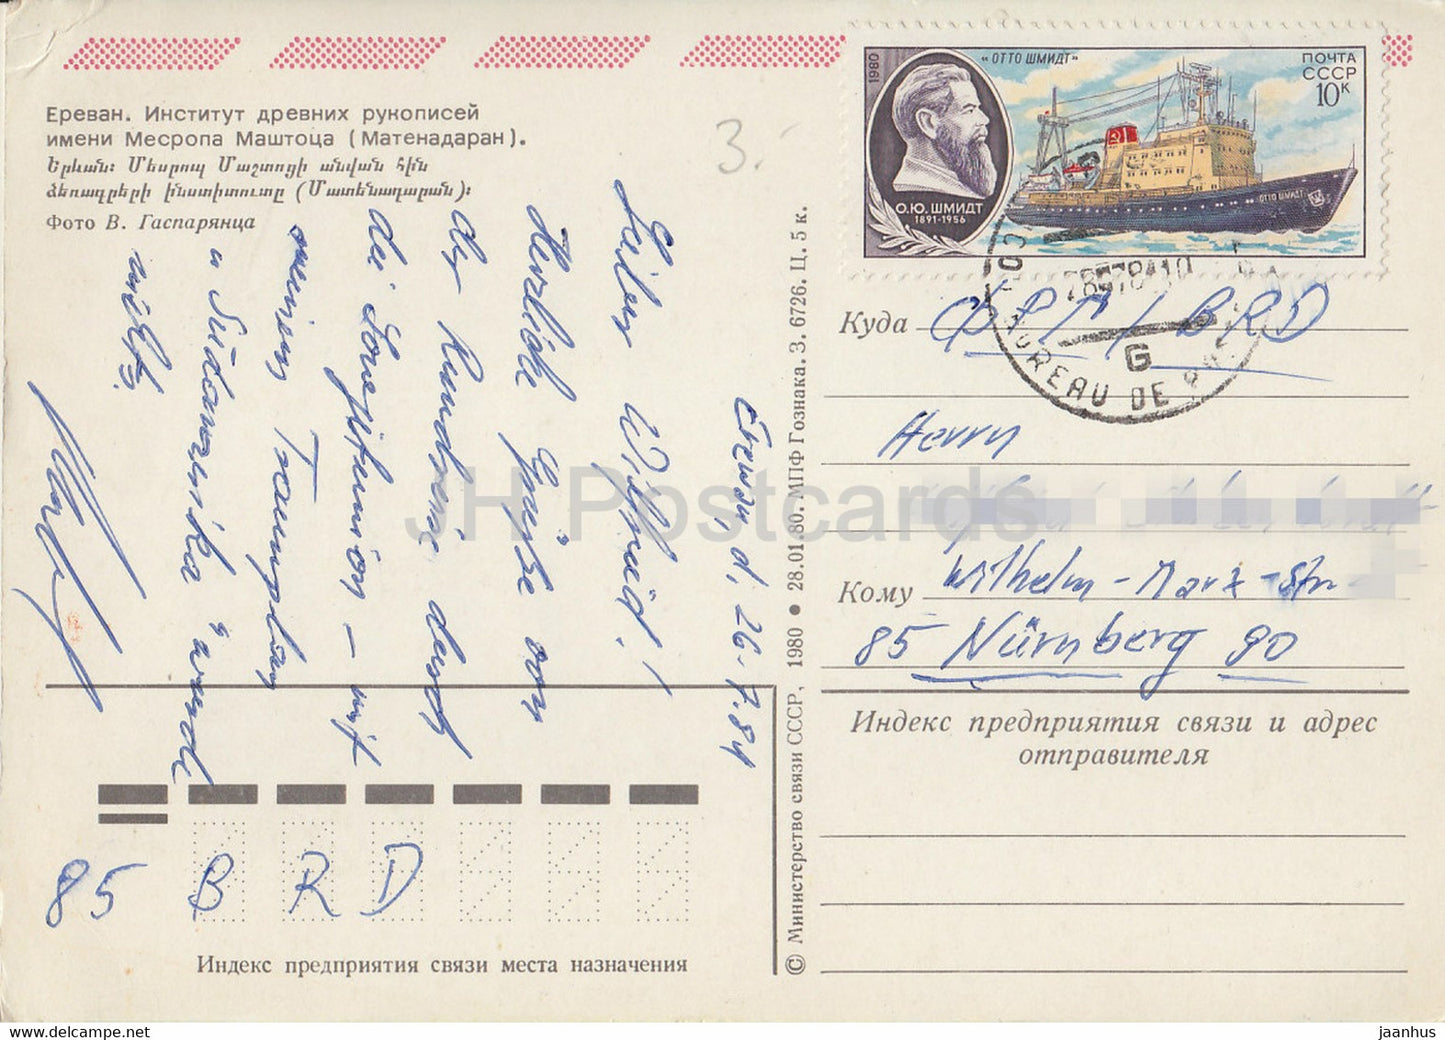 Ереван. Институт древних рукописей
имени Месропа Маштоца (Матенадаран).
Երևան: Մեսրոպ Մաշտոցի անվան հին
ձեռագրերի ինստիտուտը (Մատենադարան):
Фото В. Гаспарянца
3.-
1980
«ОТТО ШМИДТ»
ПОЧТА
СССР
10к
О.Ю. ШМИДТ
1891-1956
ОТТО ШМИДТ
G
BUREAU DE
Куда ФРГ / BRD
Herrn
Кому Wilhelm-Marx-Str.
85 Nürnberg 90
Индекс предприятия связи и адрес
отправителя
Erewan, d. 26.7.84
Lieber Wilfried!
Herzliche Grüße von
der Rundreise durch
die Sowjetunion - mit
meinem
u
85 BRD
Индекс предприятия связи места назначения
© Министерство связи СССР, 1980 ● 28.01.80. МПФ Гознака. З. 6726. Ц. 5 к.
JH Postcards
https://www.delcampe.net
jaanhus